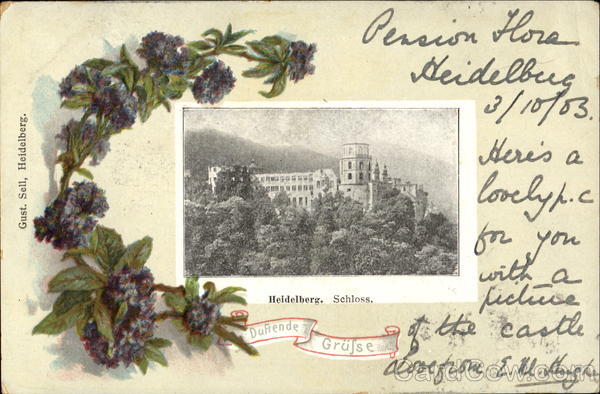 Pension Flora
Heidelberg
3/10/03.
Here's a
lovely p.c
for you
with a
picture
of the castle
Love from E.M.
Gust. Sell, Heidelberg.
Heidelberg. Schloss.
Duftende Grüße
CardCow.com